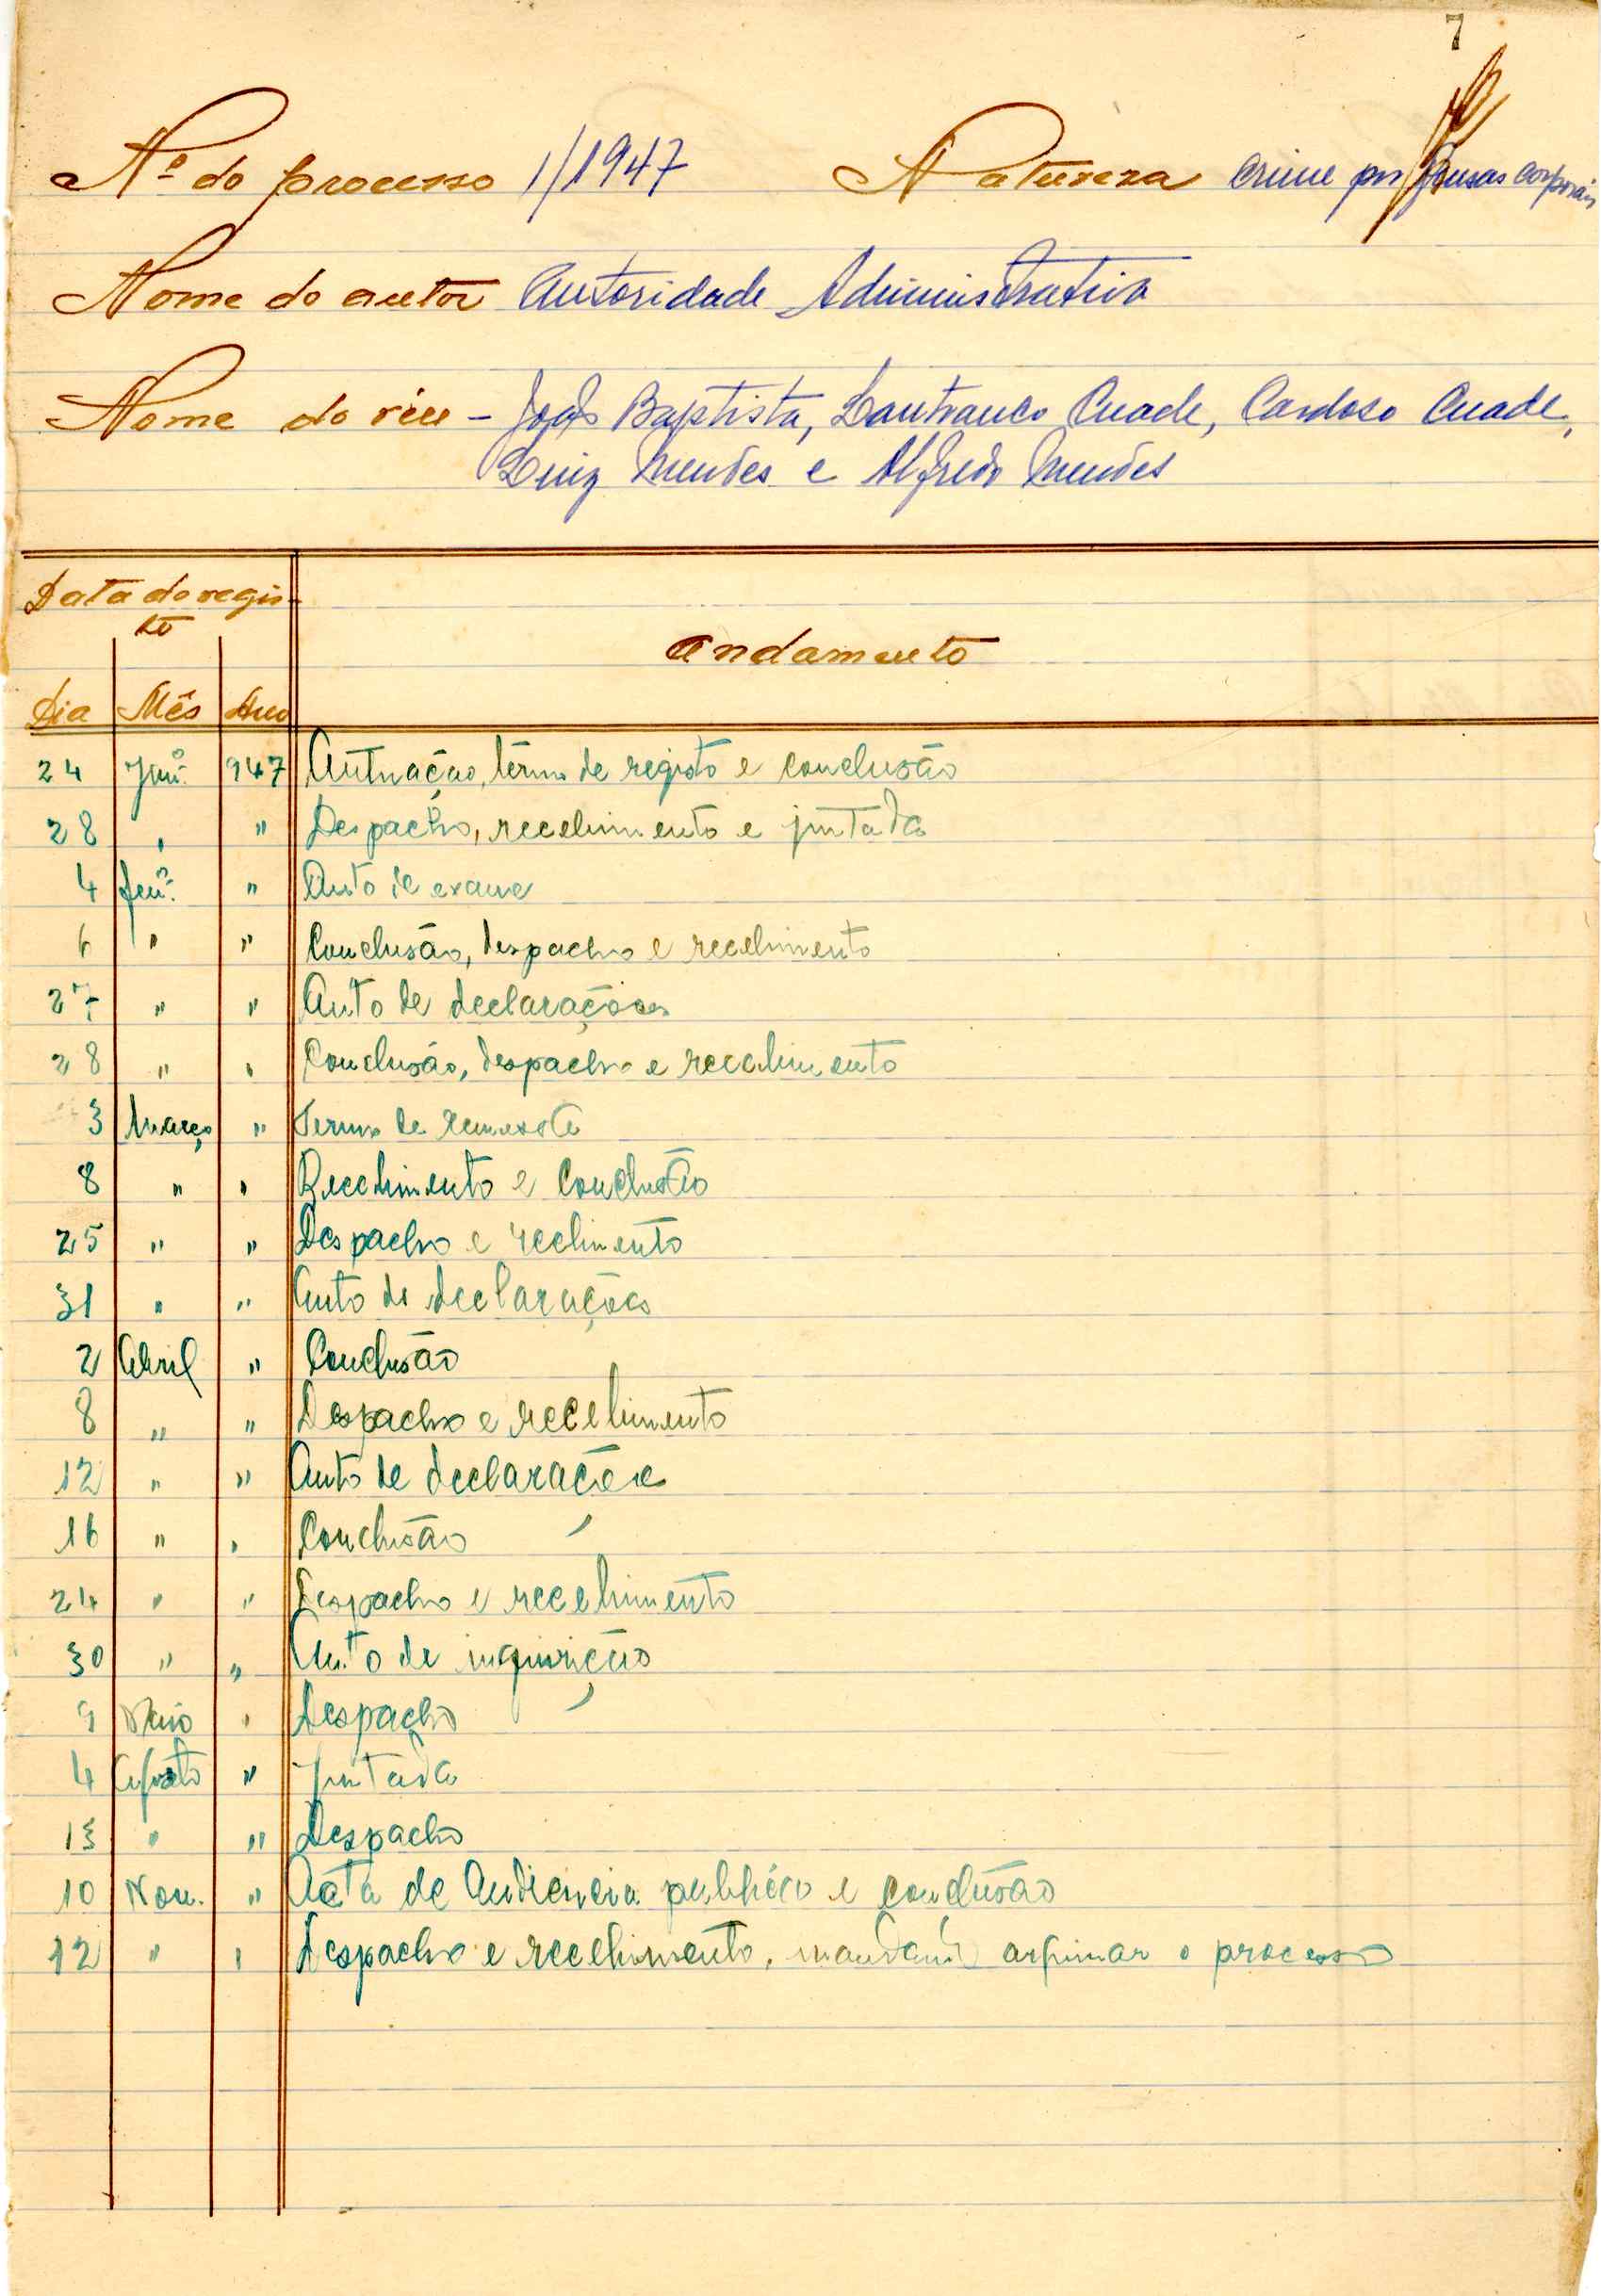 7
Nº do processo 1/1947 Natureza crime por ofensas corporais
Nome do autor Autoridade Administrativa
Nome do réu - João Baptista, Lanfranco Cuade, Cardoso Cuade,
Luiz Mendes e Alfredo Mendes
Data do regis-
to
Andamento
Dia Mês Ano
24 Janº. 947 Autuação, têrmo de registo e conclusão
28 " " Despacho, recebimento e juntada
4 Fevº. " Auto de exame
6 " " Conclusão, despacho e recebimento
27 " " Auto de declarações
28 " " Conclusão, despacho e recebimento
3 Março " Termo de remessa
8 " " Recebimento e conclusão
25 " " Despacho e recebimento
31 " " Auto de declarações
2 Abril " Conclusão
8 " " Despacho e recebimento
12 " " Auto de declarações
16 " " Conclusão
24 " " Despacho e recebimento
30 " " Auto de inquirição
9 Maio " Despacho
4 Agosto " Juntada
13 " " Despacho
10 Nov. " Acta de Audiencia publica e conclusão
12 " " Despacho e recebimento, mandand arquivar o processo